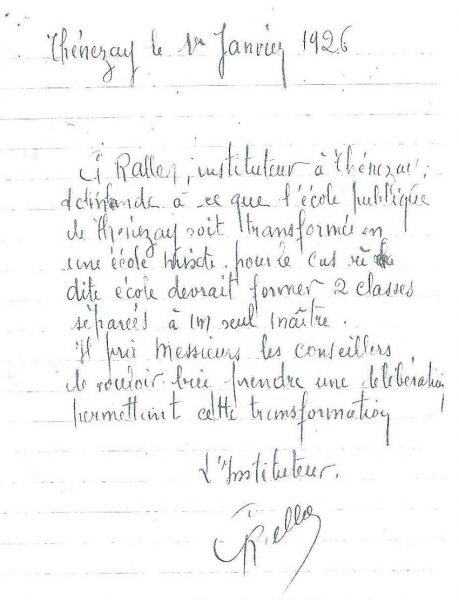 Thénezay le 1er Janvier 1926
G Rallet, instituteur à Thénezay,
demande à ce que l'école publique
de Thénezay soit transformée en
une école mixte pour le cas où la
dite école devrait former 2 classes
séparées à un seul maître.
Il prie Messieurs les conseillers
de vouloir bien prendre une délibération
permettant cette transformation
L'Instituteur.